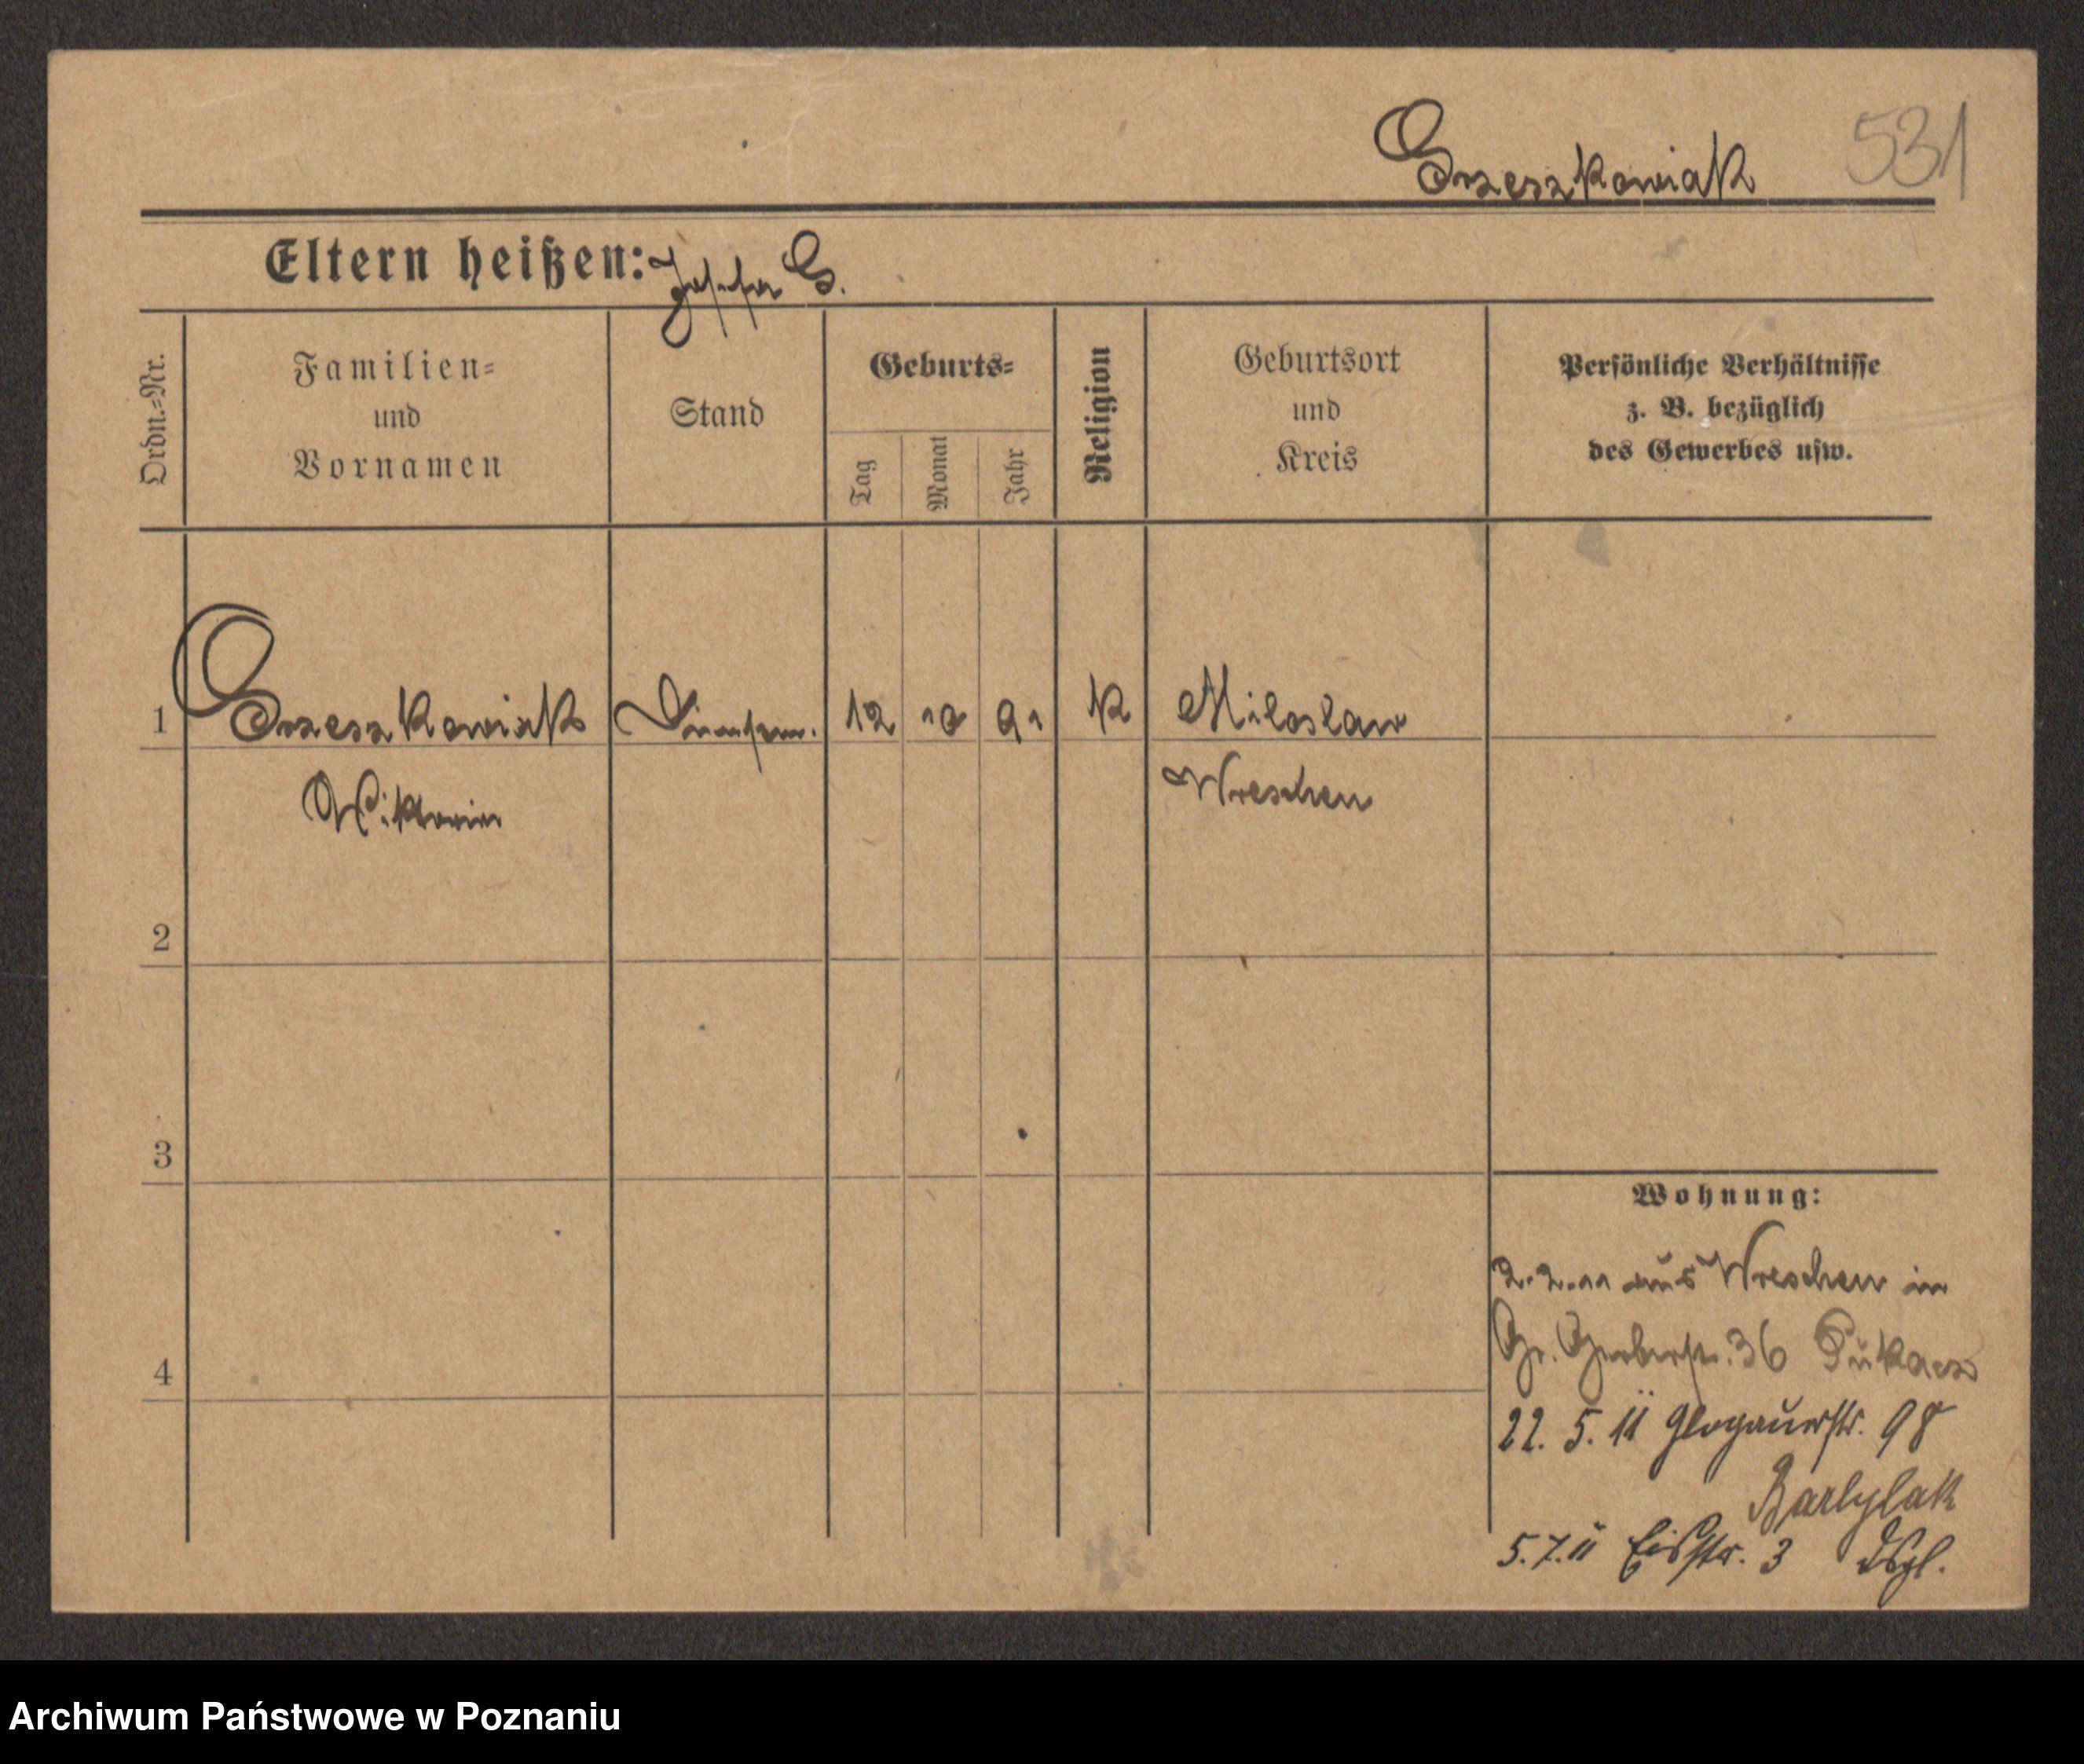 Grzeszkowiak 531
Eltern heißen: Josefa G.
Ordn.=Nr.
Familien=
und
Vornamen
Stand
Geburts=
Tag
Monat
Jahr
Religion
Geburtsort
und
Kreis
Persönliche Verhältnisse
z. B. bezüglich
des Gewerbes usw.
1 Grzeszkowiak 12 10 91 K Miloslaw
Wiktoria Wreschen
2
3
4
Wohnung:
2.2.11 aus Wreschen in
Gr. Gerberstr. 36
22. 5. 11 Glogauerstr. 98
5.7.11 Eisstr. 3 dsgl.
Archiwum Państwowe w Poznaniu